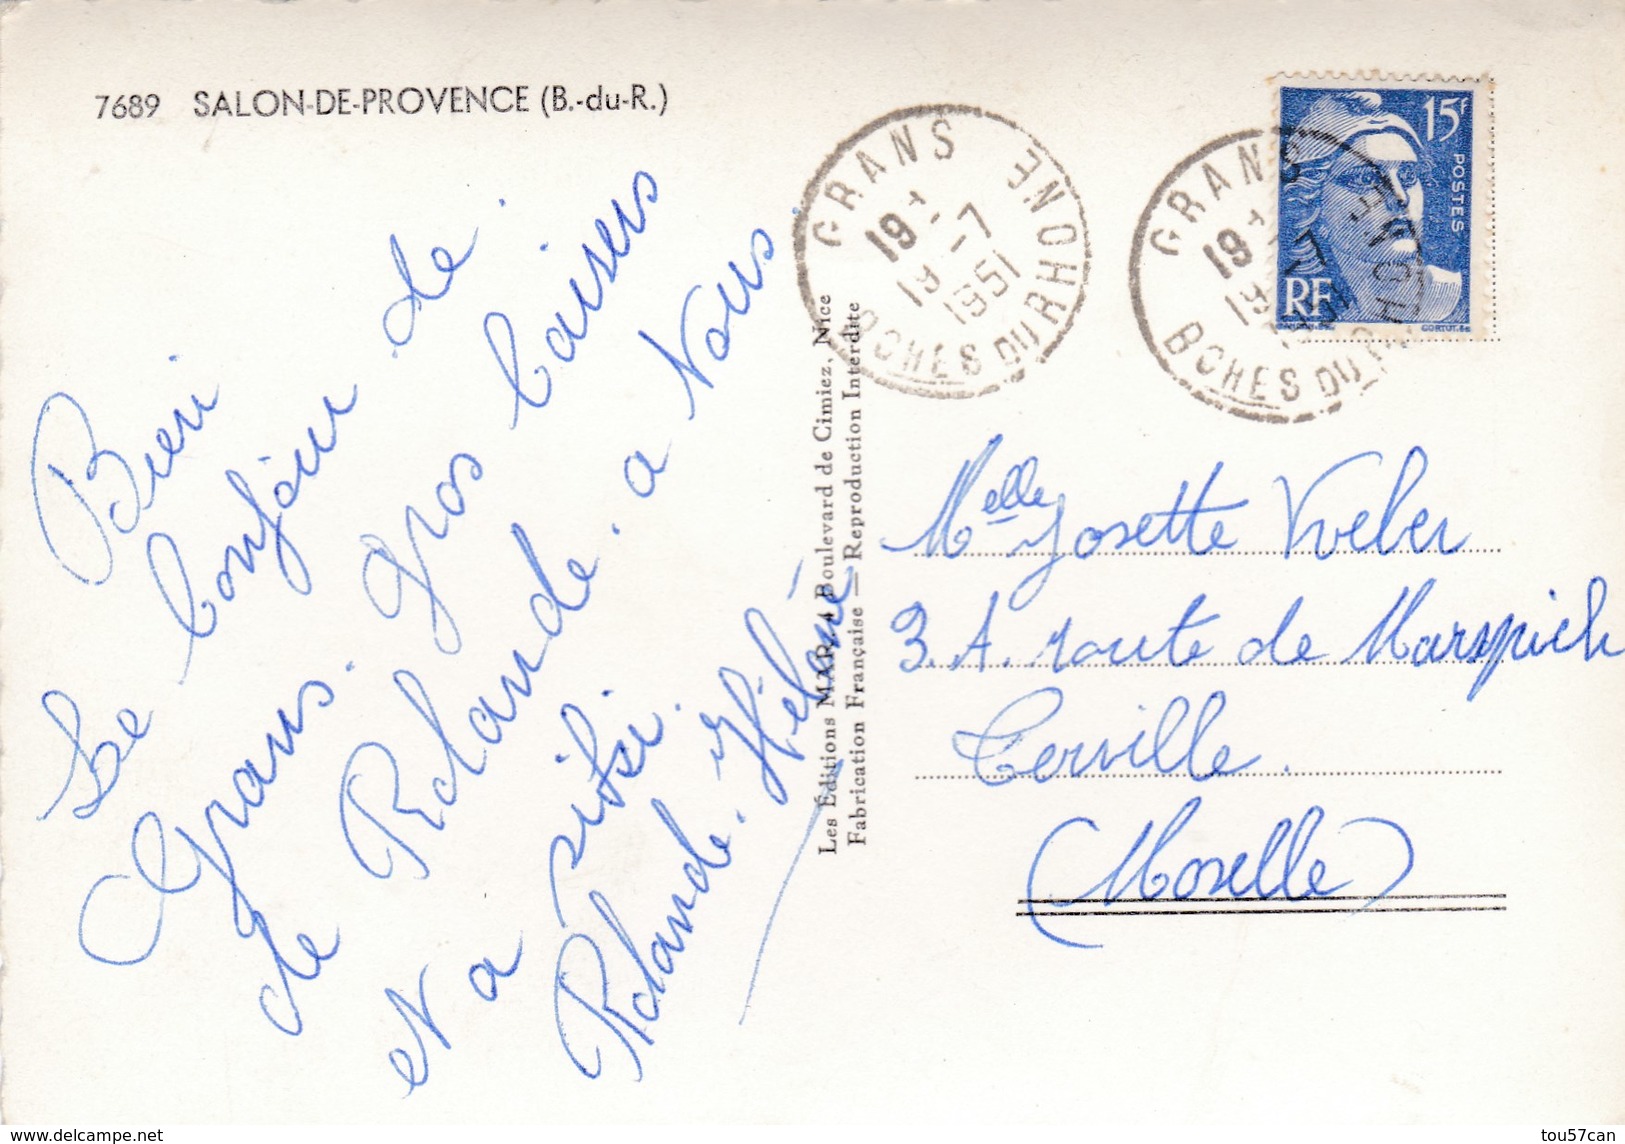 7689 SALON-DE-PROVENCE (B.-du-R.)
Bien
le bonjour de
Grans. Gros baisers
de Rolande. a Vous
et a
Rolande. Hélène
Les Éditions MAR, 4 Boulevard de Cimiez, Nice
Fabrication Française — Reproduction Interdite
GRANS
19 H
19-7
1951
BCHES DU RHONE
GRANS
19 H
BCHES DU RHONE
15F
POSTES
RF
Melle Josette Weber
3. A. route de Marspich
Terville.
(Moselle)
delcampe.net
tou57can